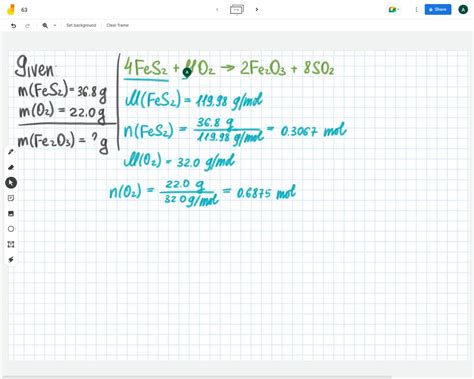 63
Share
A
Set background
Clear frame
Given
m(FeS₂)=36.8g
m(O₂) = 22.0g
m(Fe₂O₃) = ? g
4FeS₂ + 11O₂ → 2Fe₂O₃ + 8SO₂
M(FeS₂) = 119.98 g/mol
n(FeS₂) = 36.8 g / 119.98 g/mol = 0.3067 mol
M(O₂) = 32.0 g/mol
n(O₂) = 22.0 g / 32.0 g/mol = 0.6875 mol